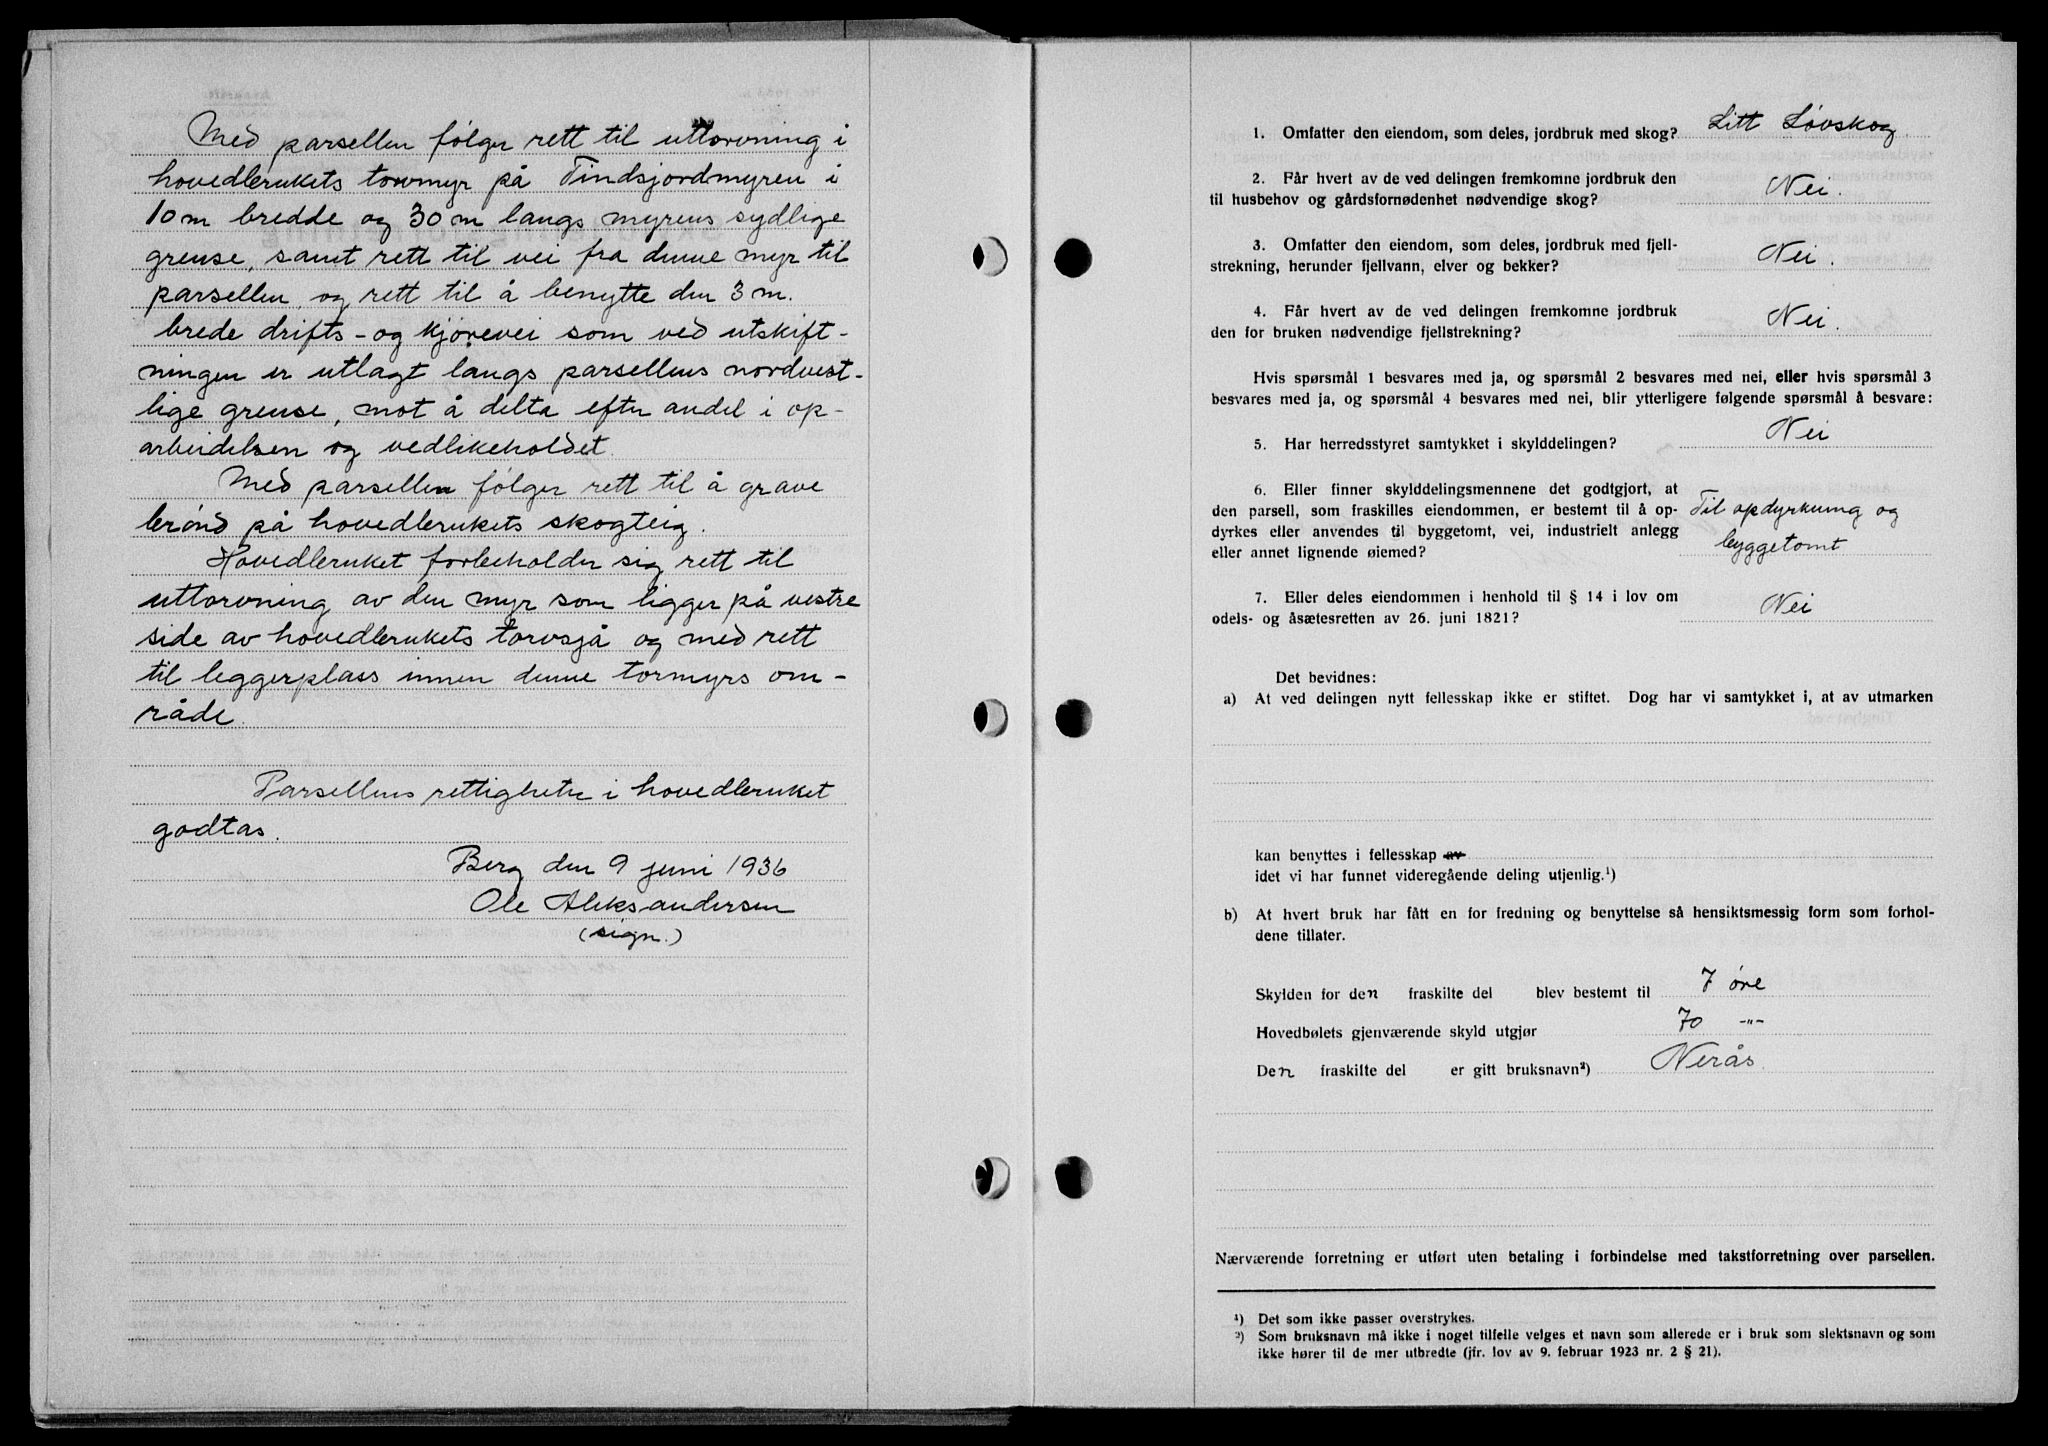 Med parsellen følger rett til uttorvning i
hovedbrukets tormyr på Tindsjordmyren i
10 m bredde og 30 m langs myrens sydlige
grense, samt rett til vei fra denne myr til
parsellen, og rett til å benytte den 3 m.
brede drifts- og kjørevei som ved utskift-
ningen er utlagt langs parsellens nordvest-
lige grense, mot å delta efter andel i op-
arbeidelsen og vedlikeholdet.
Med parsellen følger rett til å grave
brønd på hovedbrukets skogteig.
Hovedbruket forbeholder sig rett til
uttorvning av den myr som ligger på vestre
side av hovedbrukets torvsjå og med rett
til leggerplass innen denne tormyrs om-
råde.
Parsellens rettigheter i hovedbruket
godtas.
Berg den 9 juni 1936
Ole Aleksandersen
(sign.)
1. Omfatter den eiendom, som deles, jordbruk med skog? Litt Løvskog
2. Får hvert av de ved delingen fremkomne jordbruk den
til husbehov og gårdsfornødenhet nødvendige skog? Nei.
3. Omfatter den eiendom, som deles, jordbruk med fjell-
strekning, herunder fjellvann, elver og bekker? Nei.
4. Får hvert av de ved delingen fremkomne jordbruk
den for bruken nødvendige fjellstrekning? Nei.
Hvis spørsmål 1 besvares med ja, og spørsmål 2 besvares med nei, eller hvis spørsmål 3
besvares med ja, og spørsmål 4 besvares med nei, blir ytterligere følgende spørsmål å besvare:
5. Har herredsstyret samtykket i skylddelingen? Nei
6. Eller finner skylddelingsmennene det godtgjort, at
den parsell, som fraskilles eiendommen, er bestemt til å op- Til opdyrkning og
dyrkes eller anvendes til byggetomt, vei, industrielt anlegg
eller annet lignende øiemed? byggetomt
7. Eller deles eiendommen i henhold til § 14 i lov om
odels- og åsætesretten av 26. juni 1821? Nei
Det bevidnes:
a) At ved delingen nytt fellesskap ikke er stiftet. Dog har vi samtykket i, at av utmarken
kan benyttes i fellesskap av
idet vi har funnet videregående deling utjenlig.¹)
b) At hvert bruk har fått en for fredning og benyttelse så hensiktsmessig form som forhol-
dene tillater.
Skylden for den fraskilte del blev bestemt til 7 øre
Hovedbølets gjenværende skyld utgjør 70 -"-
Den fraskilte del er gitt bruksnavn²) Nerås.
Nærværende forretning er utført uten betaling i forbindelse med takstforretning over parsellen.
¹) Det som ikke passer overstrykes.
²) Som bruksnavn må ikke i noget tilfelle velges et navn som allerede er i bruk som slektsnavn og som
ikke hører til de mer utbredte (jfr. lov av 9. februar 1923 nr. 2 § 21).